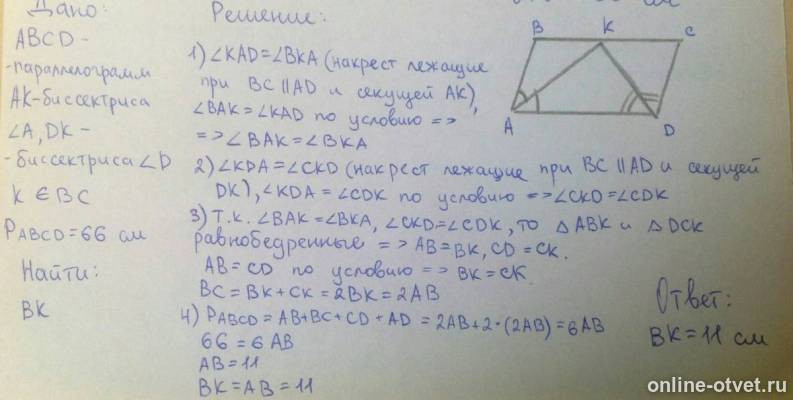 Дано:
ABCD -
-параллелограмм
AK-биссектриса
∠A, DK -
-биссектриса ∠D
K ∈ BC
PABCD = 66 см
Найти:
BK
Решение:
1) ∠KAD = ∠BKA (накрест лежащие
при BC || AD и секущей AK),
∠BAK = ∠KAD по условию =>
=> ∠BAK = ∠BKA
2) ∠KDA = ∠CKD (накрест лежащие при BC || AD и секущей
DK), ∠KDA = ∠CDK по условию => ∠CKD = ∠CDK
3) Т.к. ∠BAK = ∠BKA, ∠CKD = ∠CDK, то △ABK и △DCK
равнобедренные => AB = BK, CD = CK.
AB = CD по условию => BK = CK.
BC = BK + CK = 2BK = 2AB
4) PABCD = AB + BC + CD + AD = 2AB + 2·(2AB) = 6AB
66 = 6AB
AB = 11
BK = AB = 11
B K C
A D
Ответ:
BK = 11 см
online-otvet.ru